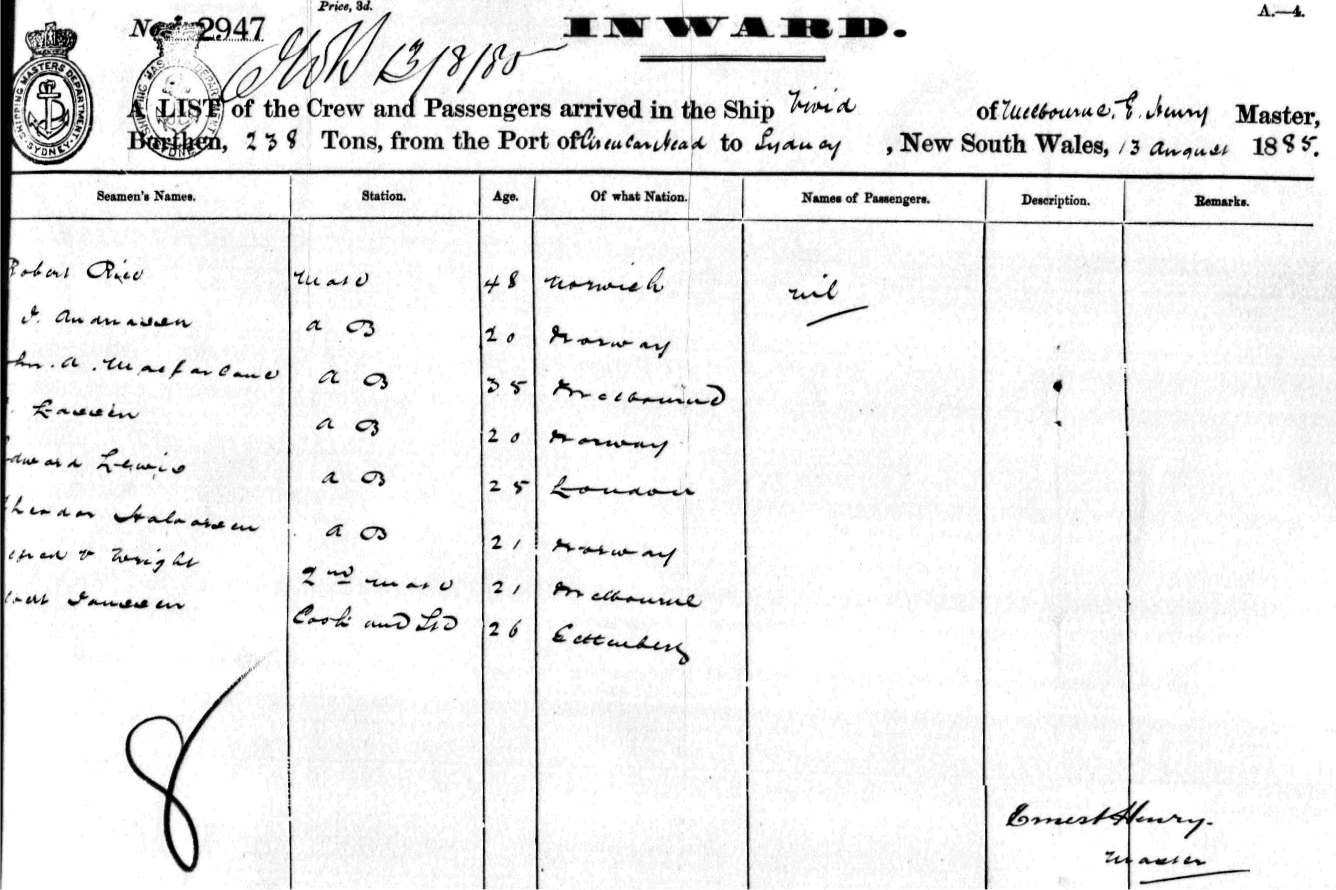 Price, 3d.
A.—4.
No. 2947
INWARD.
13/8/85
SHIPPING MASTERS DEPARTMENT SYDNEY
SHIPPING MASTERS DEPARTMENT SYDNEY
A LIST of the Crew and Passengers arrived in the Ship Vivid of Melbourne, E. Henry Master,
Burthen, 238 Tons, from the Port of Circular Head to Sydney, New South Wales, 13 August 1885.
Seamen's Names. Station. Age. Of what Nation. Names of Passengers. Description. Remarks.
Robert Rice Mate 48 Norwich nil
J. Andreassen A B 20 Norway
John. A. Macfarlane A B 35 Melbourne
Lassen A B 20 Norway
Edward Lewis A B 25 London
Theodor Halvorsen A B 21 Norway
Wright 2nd Mate 21 Melbourne
Janssen Cook and Std 26
8
Ernest Henry.
Master